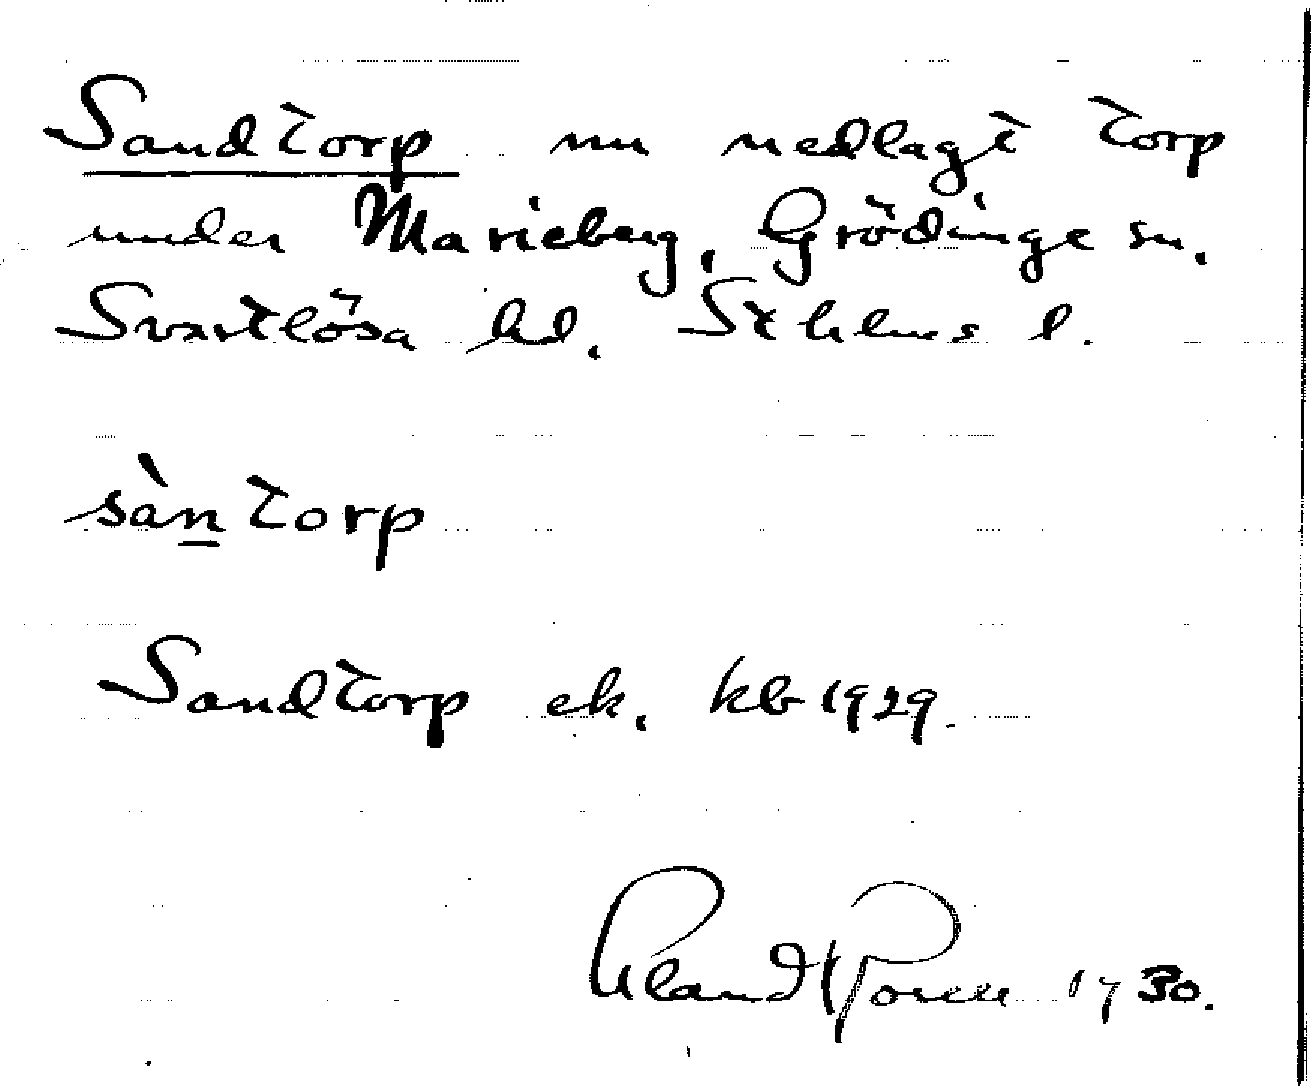 Sandtorp nu nedlagt torp
under Marieberg, Grödinge sn.
Svartlösa hd. Sthlms l.
sàn̲torp
Sandtorp ek. kb 1929.
1930.